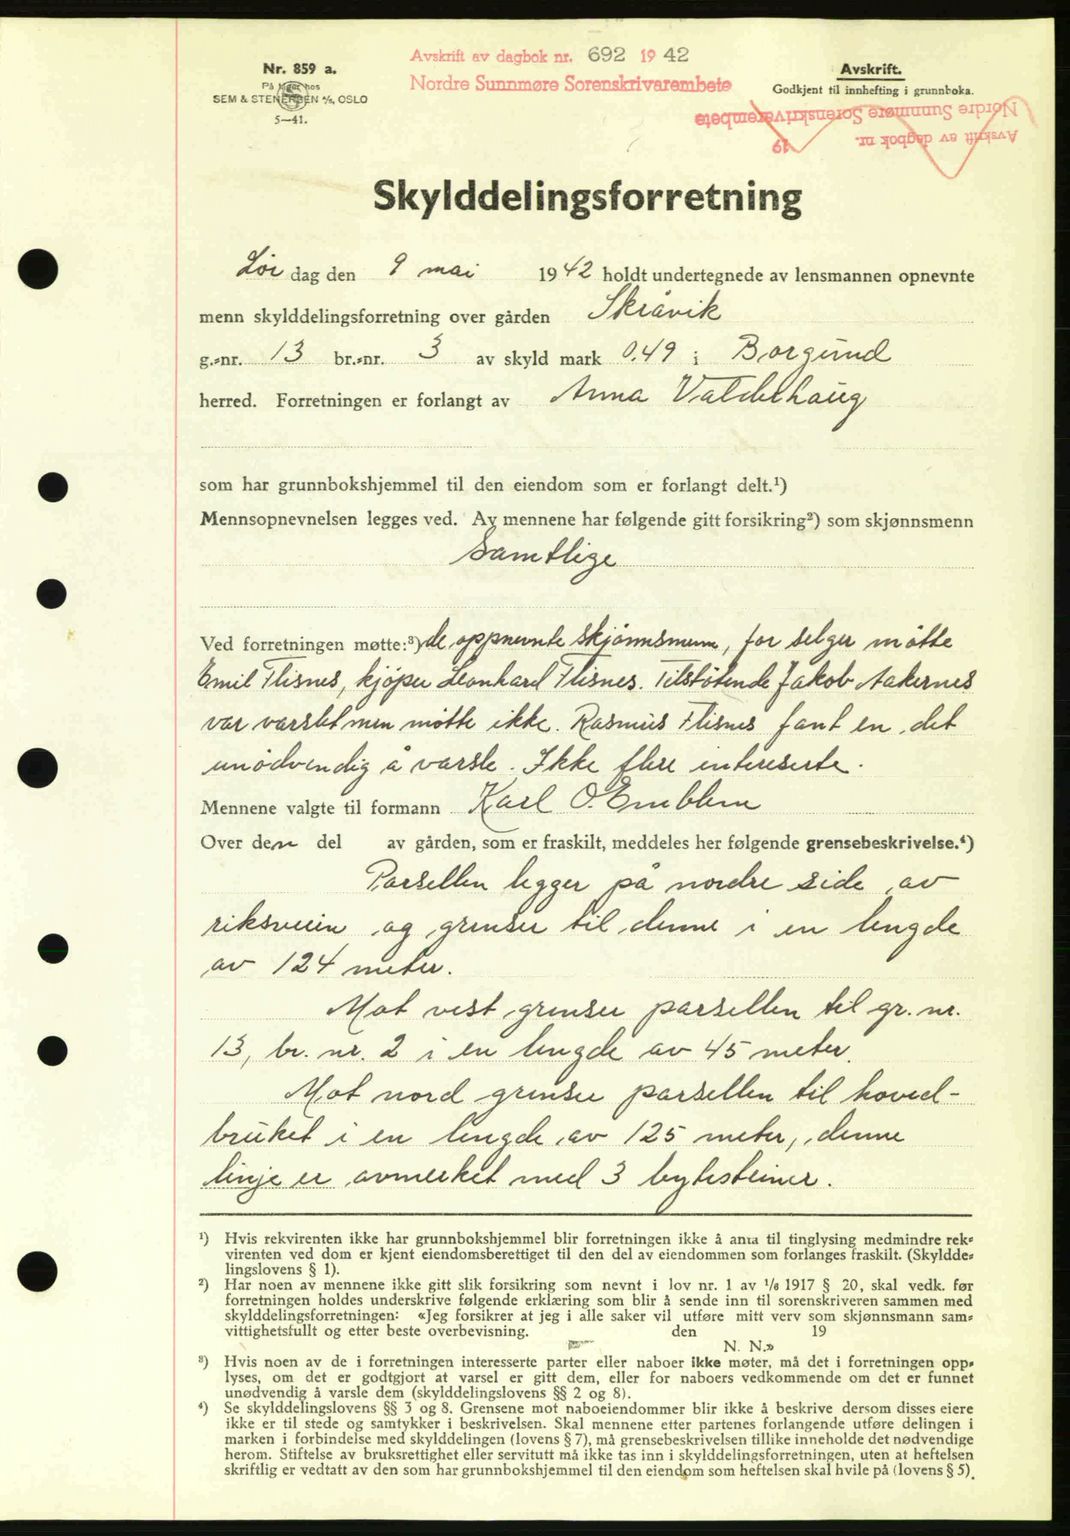 Avskrift av dagbok nr. 692 1942
Nordre Sunnmøre Sorenskrivarembete
Nr. 859 a.
På lager hos
SEM & STENERSEN A/S, OSLO
5—41.
Avskrift.
Godkjent til innhefting i grunnboka.
Avskrift av dagbok nr. 19
Nordre Sunnmøre Sorenskrivarembete
Skylddelingsforretning
Lør dag den 9 mai 1942 holdt undertegnede av lensmannen opnevnte
menn skylddelingsforretning over gården Skråvik
g.-nr. 13 br.-nr. 3 av skyld mark 0.49 i Borgund
herred. Forretningen er forlangt av Anna Valdehaug
som har grunnbokshjemmel til den eiendom som er forlangt delt.¹)
Mennsopnevnelsen legges ved. Av mennene har følgende gitt forsikring²) som skjønnsmenn
Samtlige
Ved forretningen møtte:³) de oppnevnte skjönnsmenn, for selger møtte
Emil Flisnes, kjöper Leonhard Flisnes. Tilstøtende Jakob Aakernes
var varslet men møtte ikke. Rasmus Flisnes fant en det
unödvendig å varsle. Ikke flere intereserte.
Mennene valgte til formann Karl O. Emblem
Over den del av gården, som er fraskilt, meddeles her følgende grensebeskrivelse.⁴)
Parsellen legger på nordre side av
riksveien og grenser til denne i en lengde
av 124 meter.
Mot vest grenser parsellen til gr. nr.
13, br. nr. 2 i en lengde av 45 meter.
Mot nord grenser parsellen til hoved-
bruket i en lengde av 125 meter, denne
linje er avmerket med 3 bytesteiner.
¹) Hvis rekvirenten ikke har grunnbokshjemmel blir forretningen ikke å anta til tinglysing medmindre rek-
virenten ved dom er kjent eiendomsberettiget til den del av eiendommen som forlanges fraskilt. (Skyldde-
lingslovens § 1).
²) Har noen av mennene ikke gitt slik forsikring som nevnt i lov nr. 1 av 1/6 1917 § 20, skal vedk. før
forretningen holdes underskrive følgende erklæring som blir å sende inn til sorenskriveren sammen med
skylddelingsforretningen: «Jeg forsikrer at jeg i alle saker vil utføre mitt verv som skjønnsmann sam-
vittighetsfullt og etter beste overbevisning. den 19
N. N.»
³) Hvis noen av de i forretningen interesserte parter eller naboer ikke møter, må det i forretningen opp-
lyses, om det er godtgjort at varsel er gitt dem, eller for naboers vedkommende om det er funnet
unødvendig å varsle dem (skylddelingslovens §§ 2 og 8).
⁴) Se skylddelingslovens §§ 3 og 8. Grensene mot naboeiendommer blir ikke å beskrive dersom disses eiere
ikke er til stede og samtykker i beskrivelsen. Skal mennene etter partenes forlangende utføre delingen i
marken i forbindelse med skylddelingen (lovens § 7), må grensebeskrivelsen tillike inneholde det nødvendige
herom. Stiftelse av bruksrettighet eller servitutt må ikke tas inn i skylddelingsforretningen, uten at heftelsen
skriftlig er vedtatt av den som har grunnbokshjemmel til den eiendom som heftelsen skal hvile på (lovens § 5).